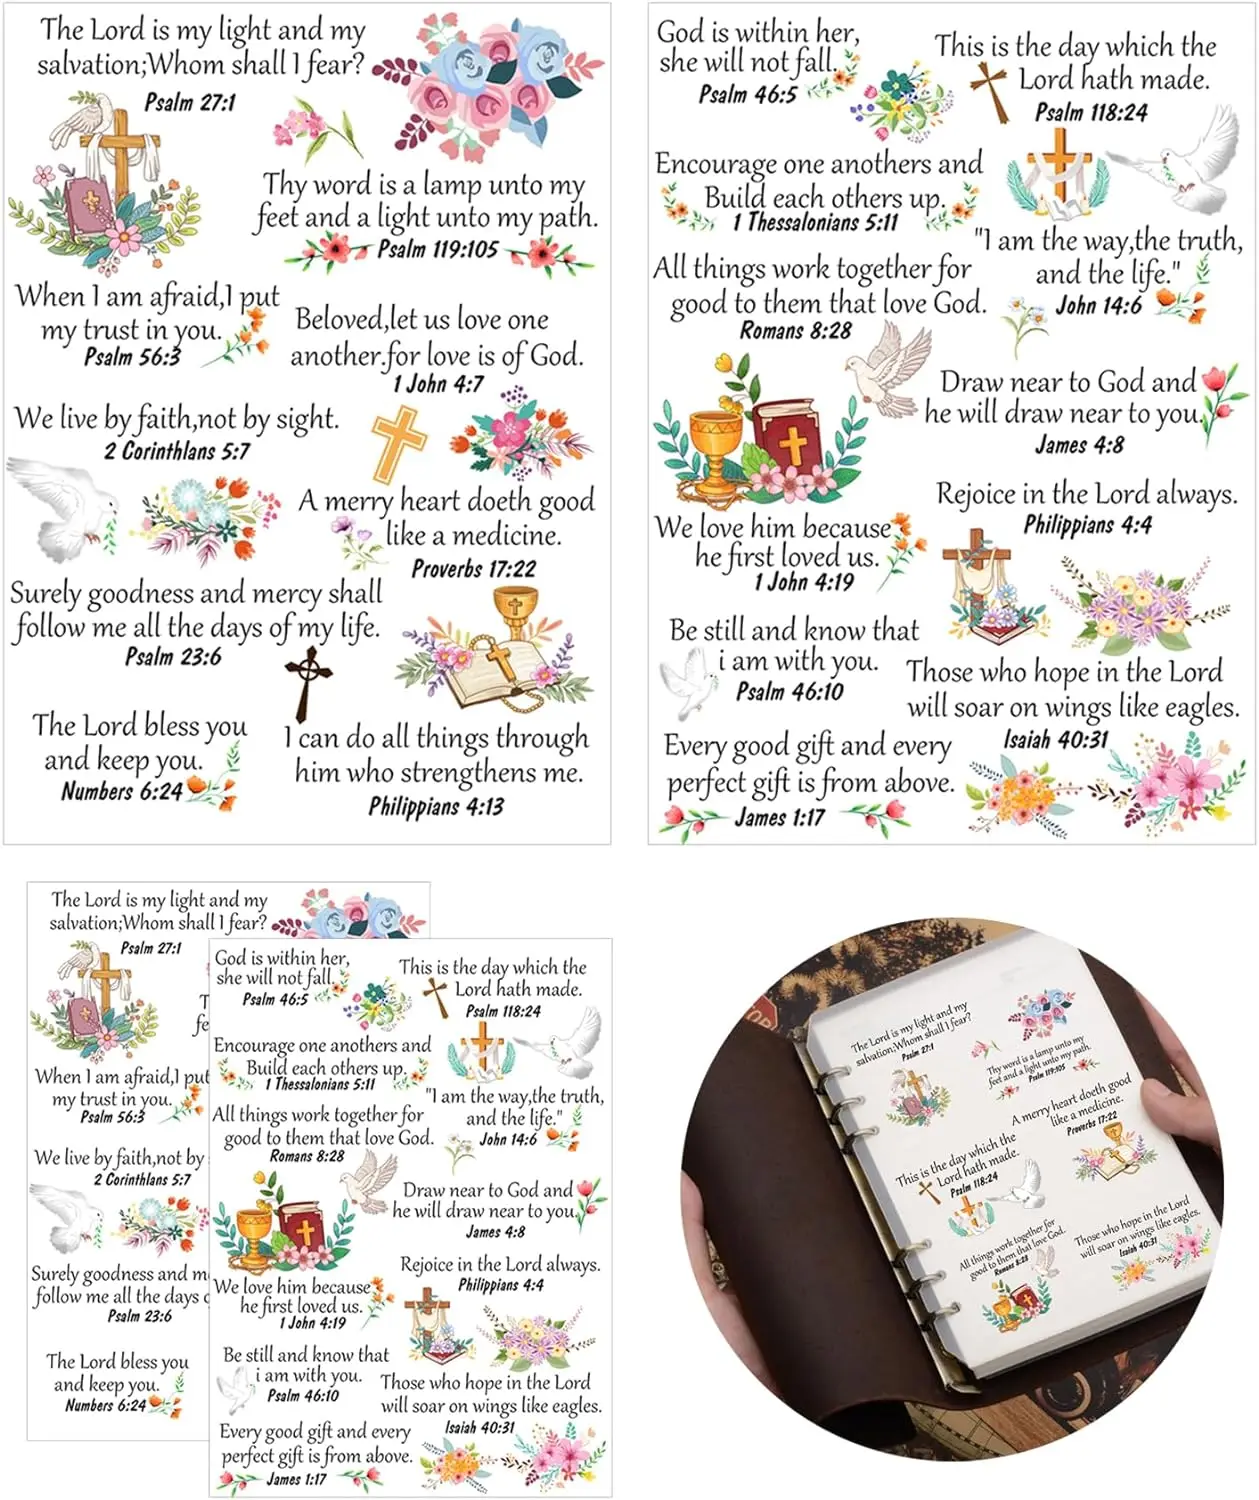 The Lord is my light and my
salvation;Whom shall I fear?
Psalm 27:1
Thy word is a lamp unto my
feet and a light unto my path.
Psalm 119:105
When I am afraid,I put
my trust in you.
Psalm 56:3
Beloved,let us love one
another.for love is of God.
1 John 4:7
We live by faith,not by sight.
2 Corinthlans 5:7
A merry heart doeth good
like a medicine.
Proverbs 17:22
Surely goodness and mercy shall
follow me all the days of my life.
Psalm 23:6
The Lord bless you
and keep you.
Numbers 6:24
I can do all things through
him who strengthens me.
Philippians 4:13
God is within her,
she will not fall.
Psalm 46:5
This is the day which the
Lord hath made.
Psalm 118:24
Encourage one anothers and
Build each others up.
1 Thessalonians 5:11
"I am the way,the truth,
and the life."
John 14:6
All things work together for
good to them that love God.
Romans 8:28
Draw near to God and
he will draw near to you.
James 4:8
Rejoice in the Lord always.
Philippians 4:4
We love him because
he first loved us.
1 John 4:19
Be still and know that
i am with you.
Psalm 46:10
Those who hope in the Lord
will soar on wings like eagles.
Isaiah 40:31
Every good gift and every
perfect gift is from above.
James 1:17
The Lord is my light and my
salvation;Whom shall I fear?
Psalm 27:1
T
fe
When I am afraid,I put
my trust in you.
Psalm 56:3
We live by faith,not by
2 Corinthlans 5:7
Surely goodness and m
follow me all the days o
Psalm 23:6
The Lord bless you
and keep you.
Numbers 6:24
God is within her,
she will not fall.
Psalm 46:5
This is the day which the
Lord hath made.
Psalm 118:24
Encourage one anothers and
Build each others up.
1 Thessalonians 5:11
"I am the way,the truth,
and the life."
John 14:6
All things work together for
good to them that love God.
Romans 8:28
Draw near to God and
he will draw near to you.
James 4:8
Rejoice in the Lord always.
Philippians 4:4
We love him because
he first loved us.
1 John 4:19
Be still and know that
i am with you.
Psalm 46:10
Those who hope in the Lord
will soar on wings like eagles.
Isaiah 40:31
Every good gift and every
perfect gift is from above.
James 1:17
The Lord is my light and my
salvation;Whom shall I fear?
Psalm 27:1
Thy word is a lamp unto my
feet and a light unto my path.
Psalm 119:105
A merry heart doeth good
like a medicine.
Proverbs 17:22
This is the day which the
Lord hath made.
Psalm 118:24
All things work together for
good to them that love God.
Romans 8:28
Those who hope in the Lord
will soar on wings like eagles.
Isaiah 40:31